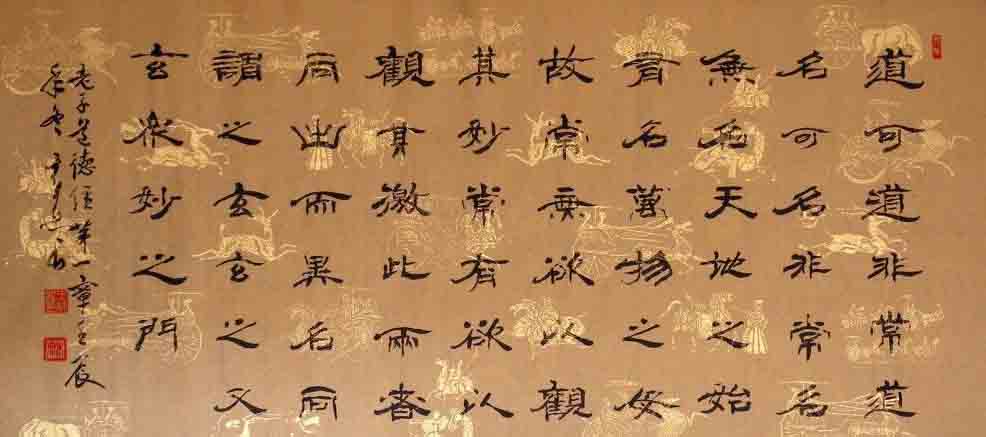 道可道非常道
名可名非常名
無名天地之始
有名萬物之母
故常無欲以觀
其妙常有欲以
觀其徼此兩者
同出而異名同
謂之玄玄之又
玄眾妙之門
老子道德經第一章壬辰
年冬